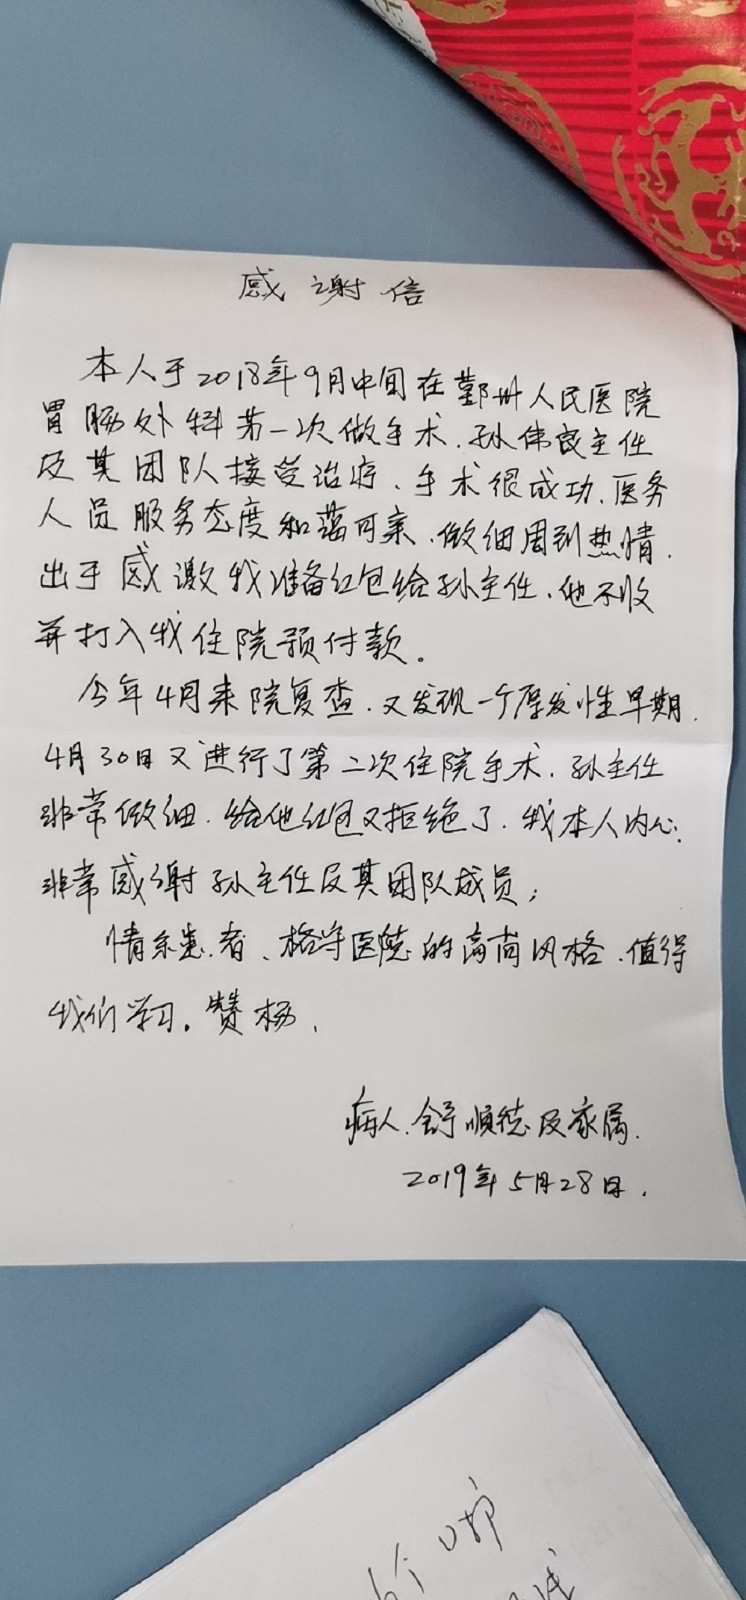 感谢信
本人于2018年9月中旬在鄞州人民医院
胃肠外科第一次做手术.孙伟良主任
及其团队接受治疗、手术很成功、医务
人员服务态度和蔼可亲、做细周到热情.
出于感激我准备红包给孙主任、他不收
并打入我住院预付款。
今年4月来院复查.又发现一个原发性早期.
4月30日又进行了第二次住院手术.孙主任
非常做细.给他红包又拒绝了.我本人内心
非常感谢孙主任及其团队成员;
情系患者、格守医德的高尚风格、值得
我们学习。赞杨.
病人.舒顺德及家属.
2019年5月28日.